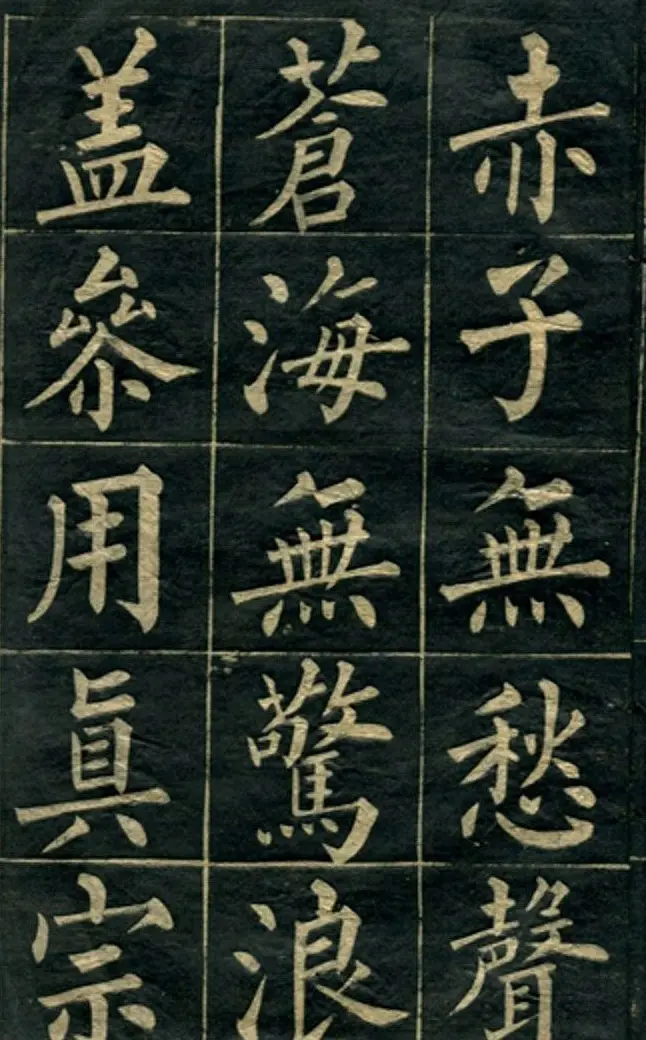 赤子無愁聲
蒼海無驚浪
盖叅用眞宗